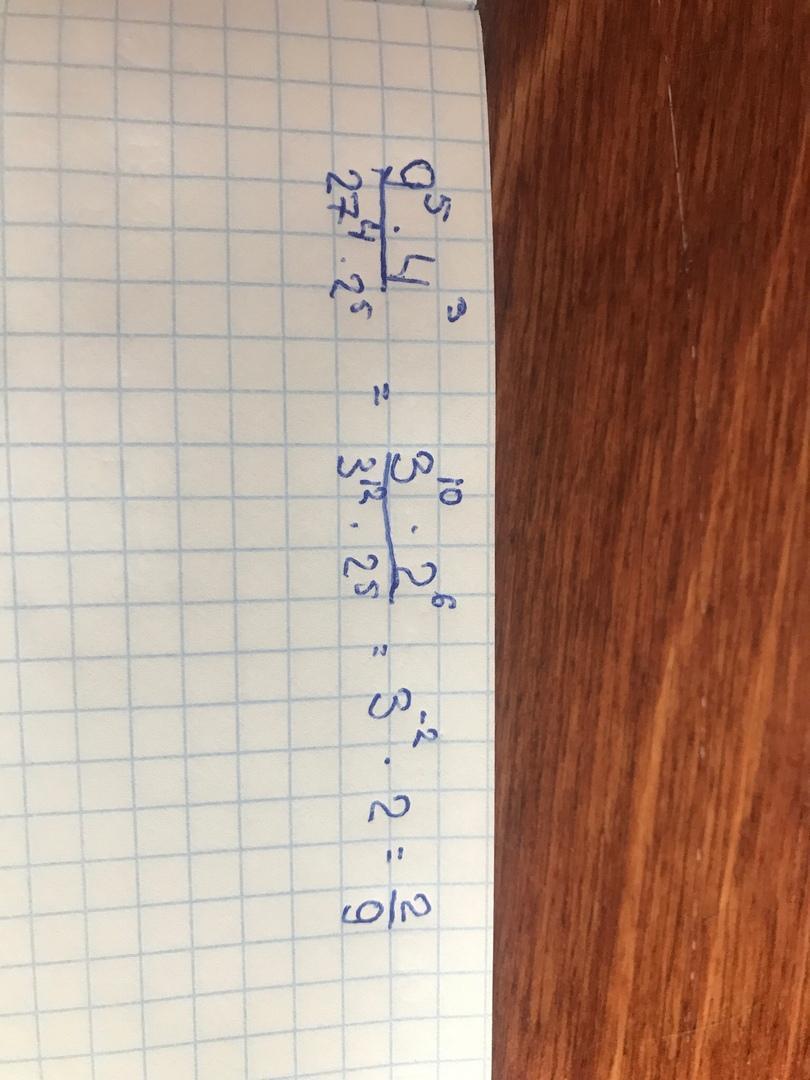 9⁵ · 4³ / 27⁴ · 2⁵ = 3¹⁰ · 2⁶ / 3¹² · 2⁵ = 3⁻² · 2 = 2/9